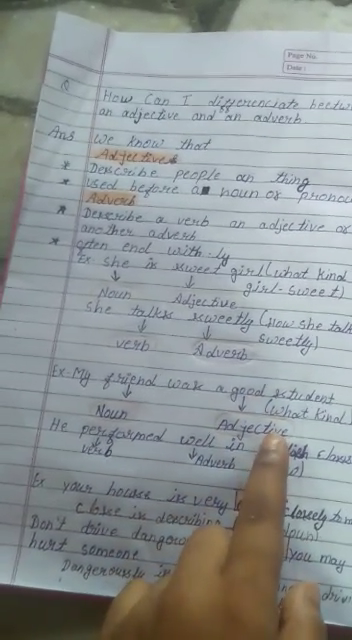 Page No.
Date:
Q How Can I differenciate between
an adjective and an adverb
Ans We know that
Adjectives
* Describe people an thing
* used before a noun or pronoun
Adverb
* Describe a verb an adjective or
another adverb
* often end with -ly
Ex she is sweet girl (what kind
girl-sweet)
Noun Adjective
she talks sweetly (how she talk
sweetly)
verb Adverb
Ex-My friend was a good student
(what kind
Noun Adjective
He performed well in class
verb Adverb
Ex your house is very closely to m
close is describing
Don't drive (you may
hurt someone
Dangerously driv